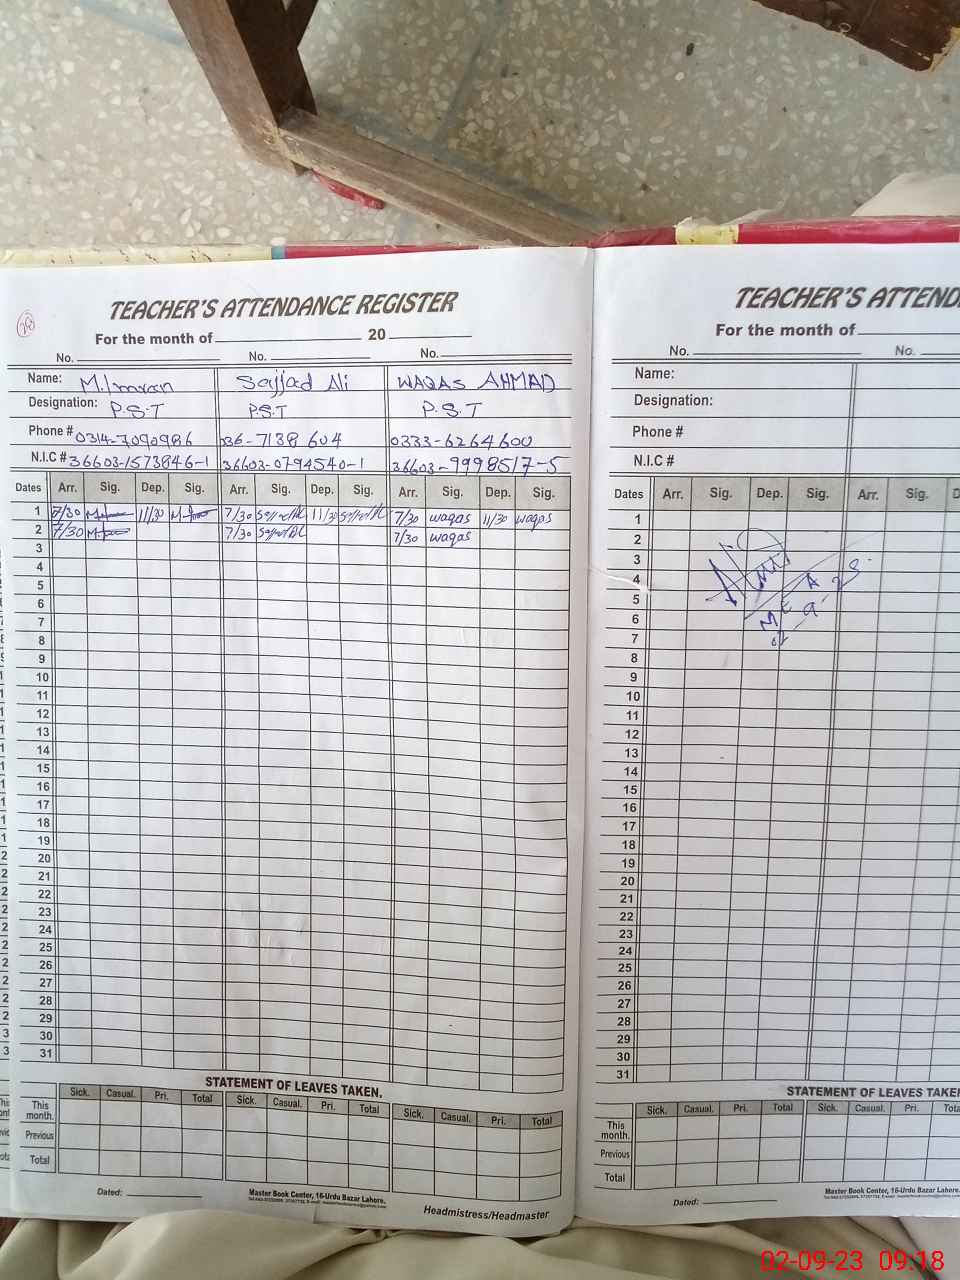 TEACHER'S ATTENDANCE REGISTER
For the month of 20
No. No. No.
Name: M.Imran Sajjad Ali WAQAS AHMAD
Designation: P.S.T P.S.T P.S.T
Phone # 0314-7090986 036-7138604 0333-6264600
N.I.C # 36603-1573846-1 36603-0794540-1 36603-9998517-5
Dates Arr. Sig. Dep. Sig. Arr. Sig. Dep. Sig. Arr. Sig. Dep. Sig.
1 7/30 11/30 7/30 11/30 7/30 waqas 11/30 waqas
2 7/30 7/30 7/30 waqas
3
4
5
6
7
8
9
10
11
12
13
14
15
16
17
18
19
20
21
22
23
24
25
26
27
28
29
30
31
STATEMENT OF LEAVES TAKEN.
Sick. Casual. Pri. Total Sick. Casual. Pri. Total Sick. Casual. Pri. Total
This month.
Previous
Total
Dated:
Master Book Center, 16-Urdu Bazar Lahore.
Headmistress/Headmaster
TEACHER'S ATTEND
For the month of
No. No.
Name:
Designation:
Phone #
N.I.C #
Dates Arr. Sig. Dep. Sig. Arr. Sig. D
1
2
3
4
5
6
7
8
9
10
11
12
13
14
15
16
17
18
19
20
21
22
23
24
25
26
27
28
29
30
31
MEA
2-9-23
STATEMENT OF LEAVES TAKEN
Sick. Casual. Pri. Total Sick. Casual. Pri. Total
This month.
Previous
Total
Dated:
Master Book Center, 16-Urdu Bazar Lahore.
02-09-23 09:18